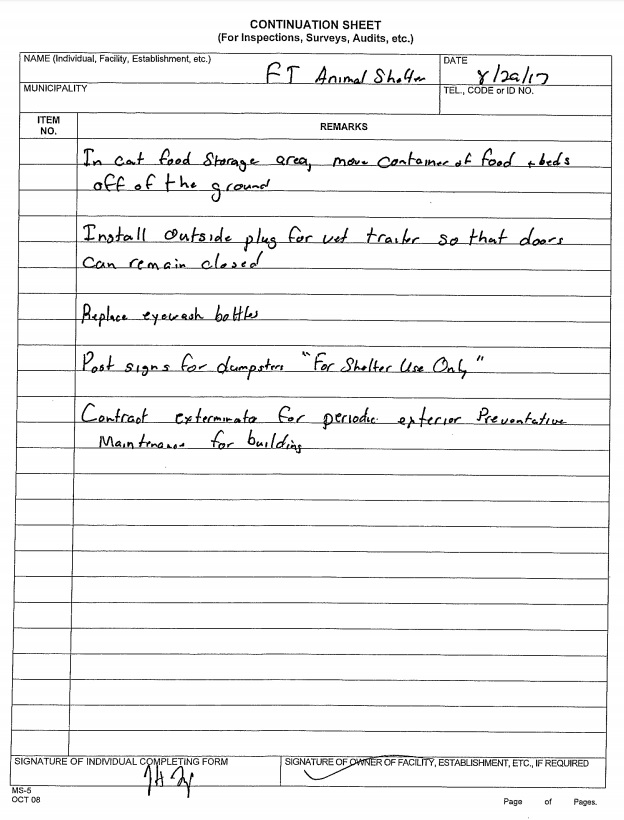 CONTINUATION SHEET
(For Inspections, Surveys, Audits, etc.)
NAME (Individual, Facility, Establishment, etc.)
FT Animal Shelter
DATE
8/29/17
MUNICIPALITY
TEL., CODE or ID NO.
ITEM
NO.
REMARKS
In cat food Storage area, move container of food + beds
off of the ground
Install outside plug for vet trailer so that doors
can remain closed
Replace eyewash bottles
Post signs for dumpsters "For Shelter Use Only"
Contract exterminator for periodic exterior Preventative
Maintenance for building
SIGNATURE OF INDIVIDUAL COMPLETING FORM
SIGNATURE OF OWNER OF FACILITY, ESTABLISHMENT, ETC., IF REQUIRED
MS-5
OCT 08
Page of Pages.